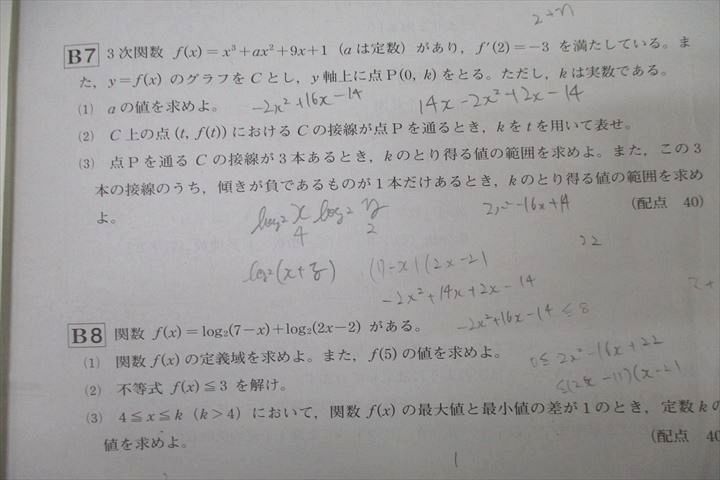 2+n
B7 3次関数 f(x)=x³+ax²+9x+1 (aは定数) があり，f′(2)=−3 を満たしている。ま
た，y=f(x) のグラフを C とし，y軸上に点P(0, k) をとる。ただし，kは実数である。
(1) a の値を求めよ。
−2x²+16x−14
14x−2x²+2x−14
(2) C上の点 (t, f(t)) における C の接線が点Pを通るとき，k を t を用いて表せ。
(3) 点Pを通る C の接線が3本あるとき，k のとり得る値の範囲を求めよ。また，この3
本の接線のうち，傾きが負であるものが1本だけあるとき，k のとり得る値の範囲を求め
よ。
(配点 40)
log₂ x/4 log₂ y/2
2x²−16x+14
22
(7−x)(2x−2)
−2x²+14x+2x−14
−2x²+16x−14≦8
B8 関数 f(x)=log₂(7−x)+log₂(2x−2) がある。
(1) 関数 f(x) の定義域を求めよ。また，f(5) の値を求めよ。
0≦2x²−16x+22
(2) 不等式 f(x)≦3 を解け。
(3) 4≦x≦k (k>4) において，関数 f(x) の最大値と最小値の差が1のとき，定数 k の
値を求めよ。
(配点 40